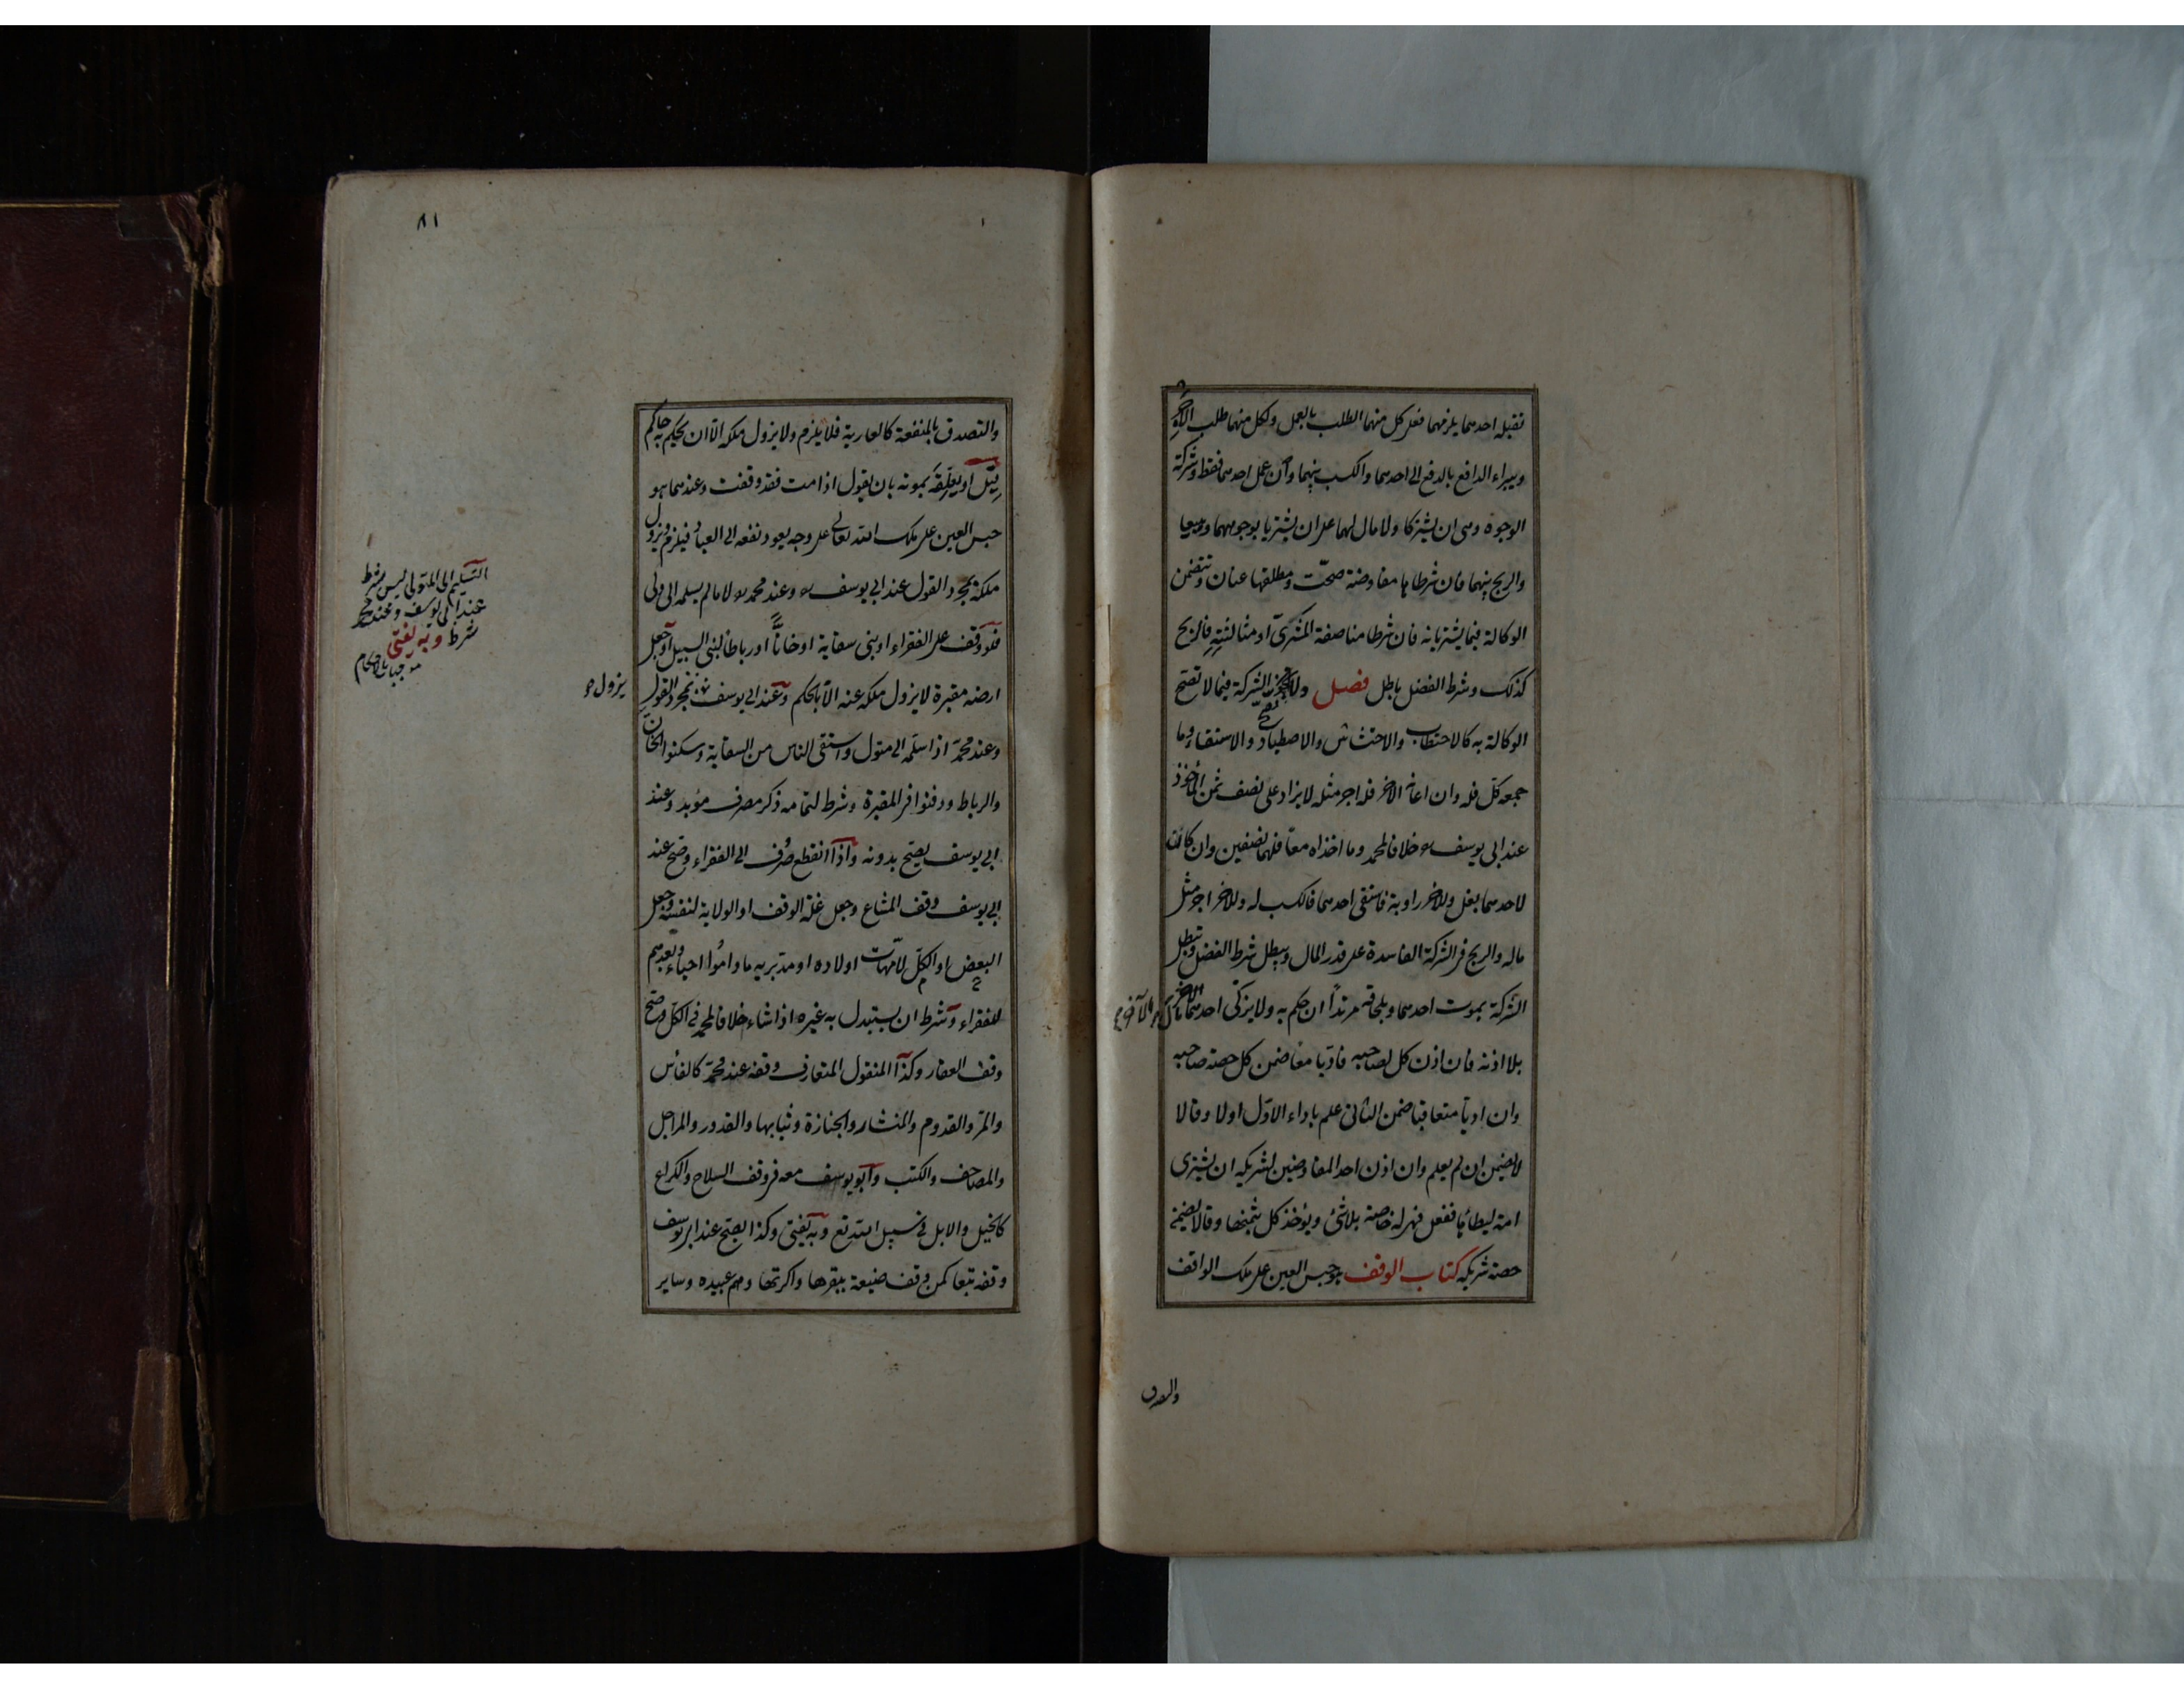 تقبله احدهما يلزمهما فعلى كل منهما الطلب بالعمل ولكل منهما طلب الاجر
ويبراء الدافع بالدفع الى احدهما والكسب بينهما وان عمل احدهما فقط وشركة
الوجوه وهى ان يشتركا ولا مال لهما على ان يشتريا بوجوههما ويبيعا
والربح بينهما فان شرطاها مفاوضة صحت ومطلقها عنان وتتضمن
الوكالة فيما يشتريانه فان شرطا مناصفة المشترى او مثالثته فالربح
كذلك وشرط الفضل باطل فصل ولا الشركة فيما لا تصح
الوكالة به كالاحتطاب والاحتشاش والاصطياد والاستقاء وما
جمعه كل فله وان اعانه الاخر فله اجر مثله لا يزاد على نصف ثمن المأخوذ
عند ابى يوسف خلافا لمحمد وما اخذاه معا فلهما نصفين وان كانت
لاحدهما بغل وللاخر راوية فاستقى احدهما فالكسب له وللاخر اجر مثل
ماله والربح فى الشركة الفاسدة على قدر المال ويبطل شرط الفضل وتبطل
الشركة بموت احدهما وبلحاقه مرتدا ان حكم به ولا يزكى احدهما مال الآخر
بلا اذنه فان اذن كل لصاحبه فاديا معا ضمن كل حصة صاحبه
وان اديا متعاقبا ضمن الثانى علم باداء الاول اولا وقالا
لا يضمن ان لم يعلم وان اذن احد المفاوضين لشريكه ان يشترى
امة ليطأها ففعل فهى له خاصة بلا شئ ويؤخذ كل بثمنها وقالا يضمن
حصة شريكه كتاب الوقف هو حبس العين على ملك الواقف
٨١
والتصدق بالمنفعة كالعارية فلا يلزم ولا يزول ملكه الا ان يحكم به حاكم
قيل او يعلقه بموته بان يقول اذا مت فقد وقفت وعندهما هو
حبس العين على ملك الله تعالى على وجه يعود نفعه الى العباد فيلزم ويزول
ملكه بمجرد القول عند ابى يوسف وعند محمد لا ما لم يسلمه الى ولى
فلو وقف على الفقراء او بنى سقاية او خانا او رباطا لبنى السبيل او جعل
ارضه مقبرة لا يزول ملكه عنه الا بالحكم وعند ابى يوسف بمجرد القول
يزول
وعند محمد اذا سلمه الى متول واستقى الناس من السقاية وسكنوا الخان
والرباط ودفنوا فى المقبرة وشرط لتمامه ذكر مصرف مؤبد وعند
ابى يوسف يصح بدونه واذا انقطع صرف الى الفقراء وصح عند
ابى يوسف وقف المشاع وجعل غلة الوقف او الولاية لنفسه وجعل
البعض او الكل لامهات اولاده او مدبريه ما داموا احياء وبعدهم
للفقراء وشرط ان يستبدل به غيره اذا شاء خلافا لمحمد فى الكل وصح
وقف العقار وكذا المنقول المتعارف وقفه عند محمد كالفأس
والمر والقدوم والمنشار والجنازة وثيابها والقدور والمراجل
والمصاحف والكتب وابو يوسف معه فى وقف السلاح والكراع
كالخيل والابل فى سبيل الله تع وبه يفتى وكذا يصح عند ابى يوسف
وقفه تبعا كمن وقف ضيعة ببقرها واكرتها وهم عبيده وساير
التسليم الى المتولى ليس بشرط
عند ابى يوسف وعند محمد
شرط وبه يفتى